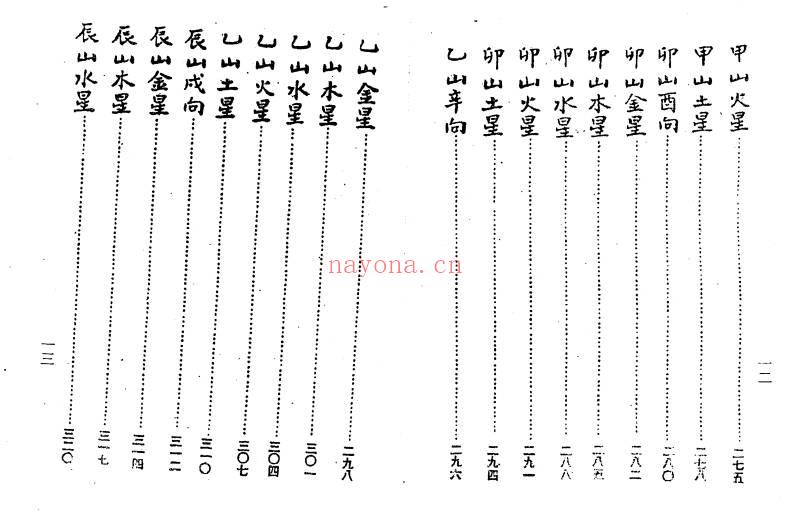 甲山火星………二七五
甲山土星………二七八
卯山酉向………二八〇
卯山金星………二八二
卯山木星………二八五
卯山水星………二八八
卯山火星………二九一
卯山土星………二九四
乙山辛向………二九六
一二
乙山金星………二九八
乙山木星………三〇一
乙山水星………三〇四
乙山火星………三〇七
乙山土星………三一〇
辰山戌向………三一二
辰山金星………三一四
辰山木星………三一七
辰山水星………三二〇
一三
nayona.cn